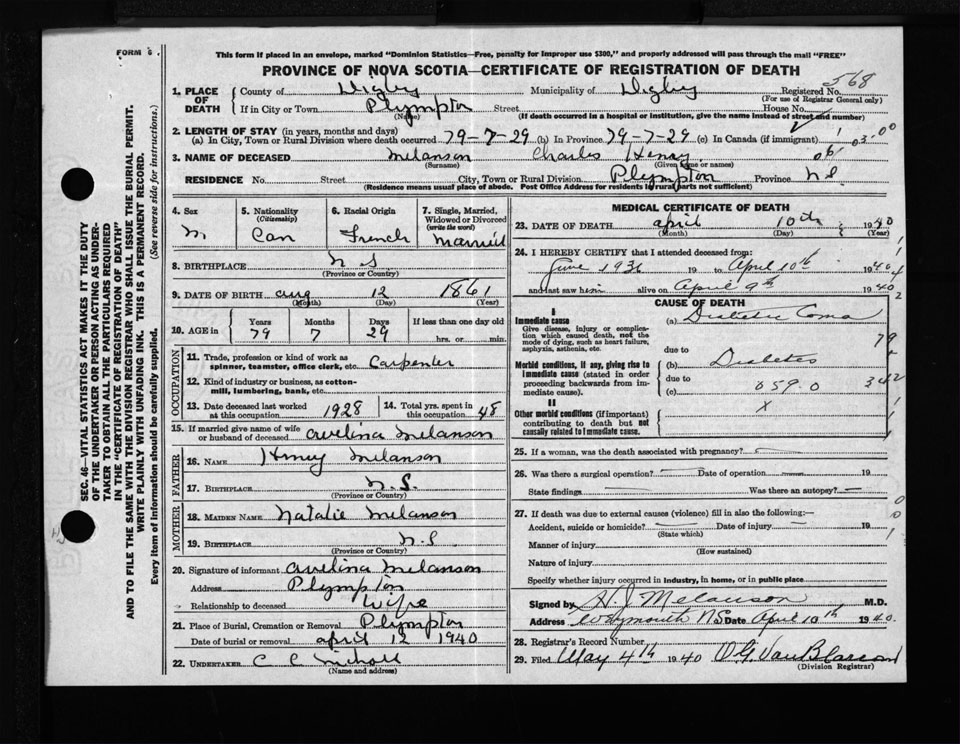 FORM 6.
This form if placed in an envelope, marked "Dominion Statistics—Free, penalty for improper use $300," and properly addressed will pass through the mail "FREE"
PROVINCE OF NOVA SCOTIA—CERTIFICATE OF REGISTRATION OF DEATH
SEC. 46—VITAL STATISTICS ACT MAKES IT THE DUTY
OF THE UNDERTAKER OR PERSON ACTING AS UNDER-
TAKER TO OBTAIN ALL THE PARTICULARS REQUIRED
IN THE "CERTIFICATE OF REGISTRATION OF DEATH"
AND TO FILE THE SAME WITH THE DIVISION REGISTRAR WHO SHALL ISSUE THE BURIAL PERMIT.
WRITE PLAINLY WITH UNFADING INK. THIS IS A PERMANENT RECORD.
Every item of information should be carefully supplied. (See reverse side for instructions.)
1. PLACE OF DEATH County of Digby Municipality of Digby Registered No. 568
(For use of Registrar General only)
If in City or Town Plympton Street House No.
(Name) (If death occurred in a hospital or institution, give the name instead of street and number)
2. LENGTH OF STAY (in years, months and days)
(a) In City, Town or Rural Division where death occurred 79-7-29 (b) In Province 79-7-29 (c) In Canada (if immigrant)
03.00
3. NAME OF DECEASED Melanson Charles Henry
(Surname) (Given name or names)
RESIDENCE No. Street City, Town or Rural Division Plympton Province N.S.
(Residence means usual place of abode. Post Office Address for residents in rural parts not sufficient)
4. Sex M
5. Nationality (Citizenship) Can
6. Racial Origin French
7. Single, Married, Widowed or Divorced (write the word) Married
8. BIRTHPLACE N S
(Province or Country)
9. DATE OF BIRTH Aug 12 1861
(Month) (Day) (Year)
10. AGE in Years Months Days If less than one day old
79 7 29 hrs. or min.
OCCUPATION
11. Trade, profession or kind of work as spinner, teamster, office clerk, etc. Carpenter
12. Kind of industry or business, as cotton-mill, lumbering, bank, etc.
13. Date deceased last worked at this occupation 1928
14. Total yrs. spent in this occupation 48
15. If married give name of wife or husband of deceased Avelina Melanson
FATHER
16. NAME Henry Melanson
17. BIRTHPLACE N.S.
(Province or Country)
MOTHER
18. MAIDEN NAME Natalie Melanson
19. BIRTHPLACE N.S
(Province or Country)
20. Signature of informant Avelina Melanson
Address Plympton
Relationship to deceased Wife
21. Place of Burial, Cremation or Removal Plympton
Date of burial or removal April 12 1940
22. UNDERTAKER C C Nichols
(Name and address)
MEDICAL CERTIFICATE OF DEATH
23. DATE OF DEATH April 10th 1940
(Month) (Day) (Year)
24. I HEREBY CERTIFY that I attended deceased from:
June 1936 19 to April 10th 1940
and last saw him alive on April 9th 1940
CAUSE OF DEATH
I
Immediate cause (a) Diabetic Coma
Give disease, injury or complication which caused death, not the mode of dying, such as heart failure, asphyxia, asthenia, etc.
due to
Morbid conditions, if any, giving rise to immediate cause (stated in order proceeding backwards from immediate cause). (b) Diabetes
due to
(c) 059.0
II
Other morbid conditions (if important) contributing to death but not causally related to immediate cause. X
25. If a woman, was the death associated with pregnancy? —
26. Was there a surgical operation? — Date of operation — 19
State findings — Was there an autopsy? —
27. If death was due to external causes (violence) fill in also the following:—
Accident, suicide or homicide? — Date of injury — 19
(State which)
Manner of injury
(How sustained)
Nature of injury
Specify whether injury occurred in industry, in home, or in public place
Signed by H J Melanson M.D.
Address Weymouth NS Date April 10th 1940
28. Registrar's Record Number
29. Filed May 4th 1940 O.G. Van Blarcom
(Division Registrar)